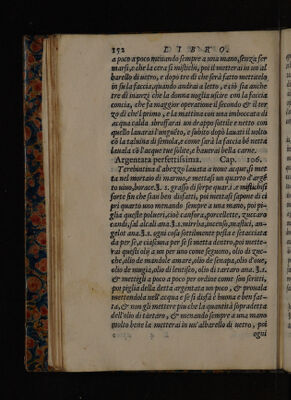 152 LIBRO.
a poco a poco menando sempre a una mano, senza fer
marsi, e che la cera si mistichi, poi il metterai in un al
barello di uetro, e dopo tre dì che serà fatto mettitelo
in su la faccia, quando andrai a letto, e ciò sia anche
tre dì inanzi che la donna uoglia uscire con la faccia
concia, che fa maggior operatione il secondo & il ter
zo dì che'l primo, e la mattina con una imboccata di
acqua calda sbruffarai un drappo sottile e netto con
quello lauarai l'unguẽto, e subito dopò lauati il uolto
cõ la taluina di semola, e come sarà la faccia bẽ netta
lauala cõ l'acque tue solite, e hauerai bella carne.
Argentata perfettissima. Cap. 106.
Terebintina d'abezzo lauata a noue acque si met
ta nel mortaio di marmo, e mettasi un quarto d'argẽ
to uino, borace.ʒ.1. grasso di serpe quar. 1. e mistichisi
forte fin che stan ben disfatti, poi mettasi sapone di ci
pri quarto uno menando sempre a una mano, poi pi-
glia queste poluere, cioè canfora, porcellette, zuccaro
candi, sal alcali ana.ʒ.1. mirrha, incenso, mastici,
golat ana.ʒ.1. ogni cosa sottilmente pesta e setacciata
da per se, e ciascuna per se si metta dentro, poi mette-
rai questi olij a un per uno come seguono, olio di zuc-
che, olio di mandole amare, olio di scopa, olio d'oue,
olio de mugia, olio di lentisco, olio di tartaro ana. ʒ.1.
& mettigli a poco a poco per ordine come son scritti,
poi piglia della detta argentata un poco, & prouala
mettendola nell'acqua e se si disfà è buona e ben fat-
ta, & non gli mettere piu che la quantità sopradetta
dell'olio di tartaro, & menando sempre a una mano
molto bene la metterai in un'albarello di uetro, poi
ogni